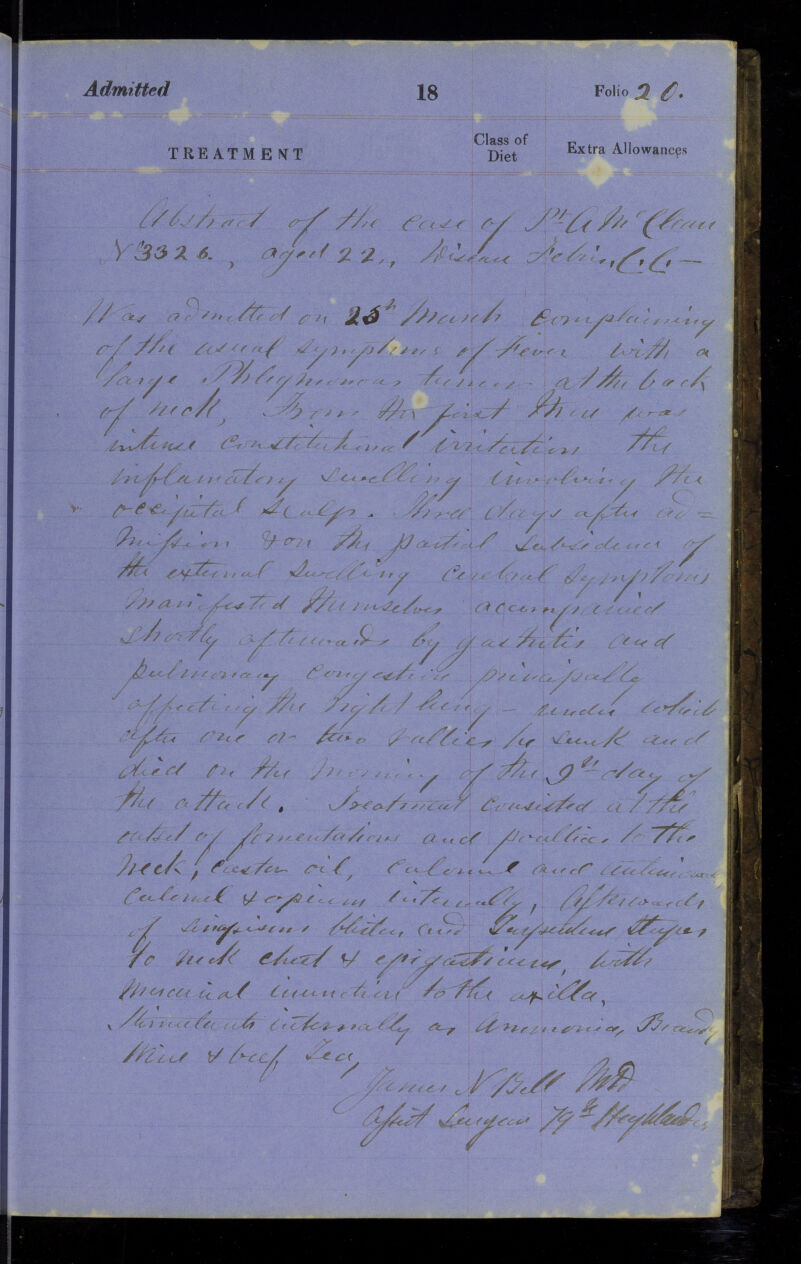 Admitted 18 Folio 20.
TREATMENT Class of Diet Extra Allowances
Abstract of the case of Pt. A McClean
No 3326., aged 22., Disease Febris. C. C. —
Was admitted on 25th March complaining
of the usual symptoms of Fever with a
large Phlegmonous tumor at the back
of neck, From the first there was
intense constitutional irritation the
inflamatory swelling involving the
occipital scalp. Three days after ad=
mission & on the partial subsidence of
the external swelling cerebral symptoms
manifested themselves accompanied
shortly afterwards by gastritis and
pulmonary congestion principally
affecting the right lung – under which
after one or two rallies he sunk and
died on the morning of the 9th day of
the attack. Treatment consisted at the
outset of fomentations and poultices to the
neck, castor oil, calomel and
calomel & opium internally, Afterwards
of sinapisms blister and Stupes
to neck chest & epigastrium, with
mercurial inunction to the axilla,
Stimulants internally as Ammonia, Brandy
Wine & beef Tea,
James N Bell MD
Assist Surgeon 79th Highlanders